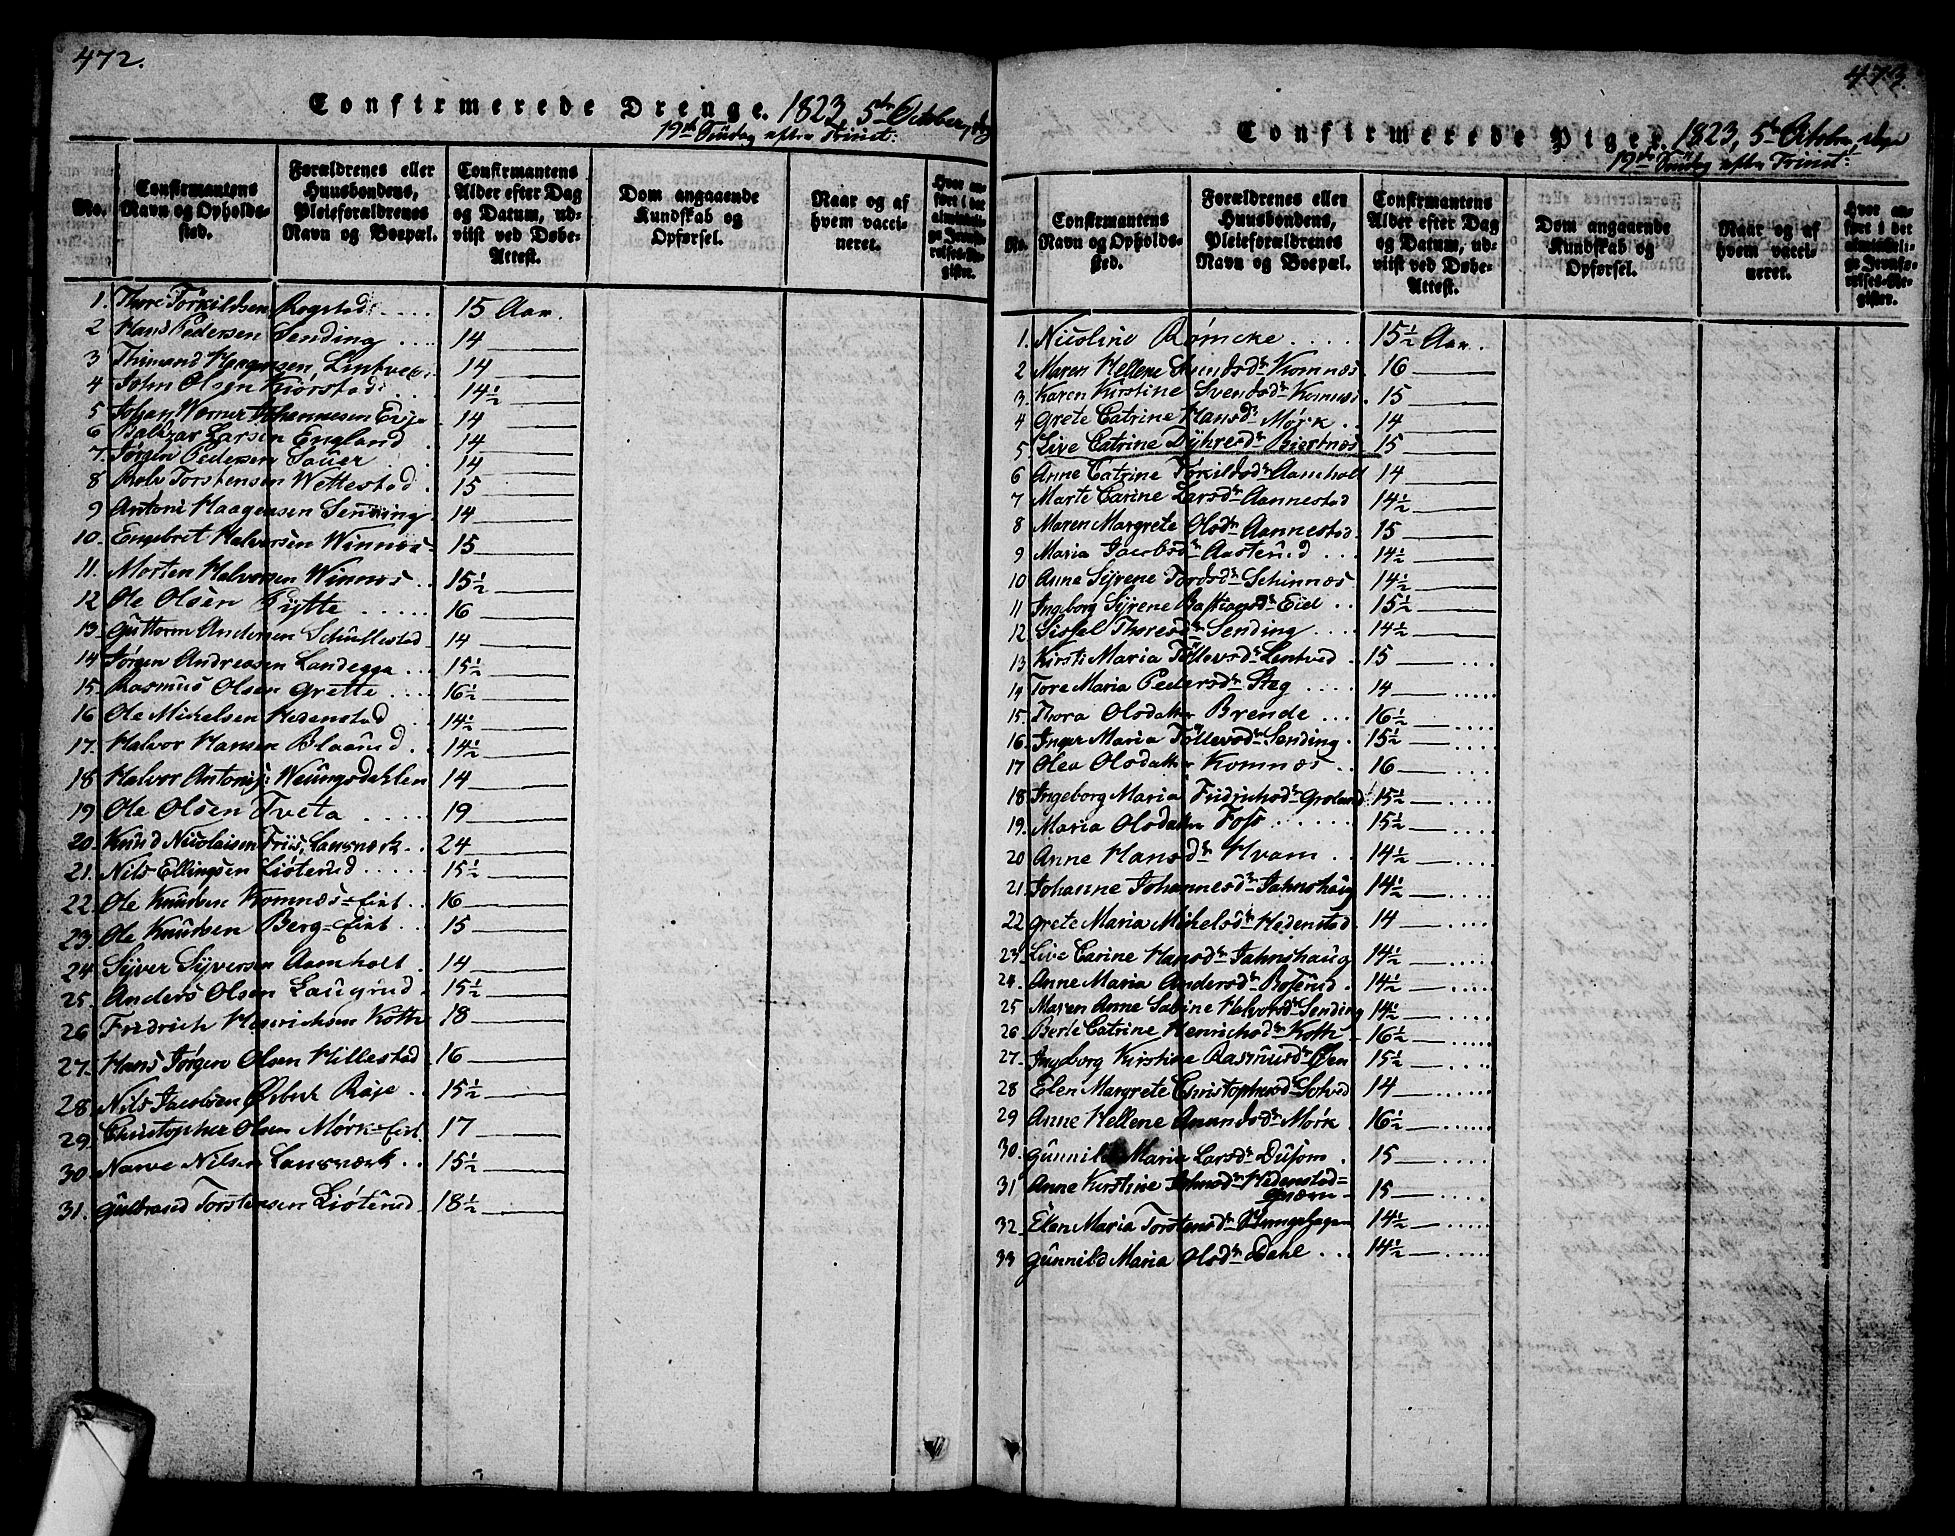 472.
Confirmerede Drenge. 1823, 5te October,
19de Søndag efter Trinit:
No.
Confirmantens Navn og Opholds-sted.
Forældrenes eller Huusbondens, Pleieforældrenes Navn og Boepæl.
Confirmantens Alder efter Dag og Datum, ud-viist ved Døbe-Attest.
Dom angaaende Kundskab og Opførsel.
Naar og af hvem vacci-neret.
1. Thore Torkildsen Rogstad 15 Aar.
2 Hans Pedersen Sending 14
3 Thimand Haagensen, Lintved 14
4 John Olsen Kiørstad 14½
5 Johan Werner Johannesen 14
6 Baltzar Larsen England 14
7. Jørgen Pedersen Sauer 14
8 Torstensen Wettestad 15
9 Antoni Haagensen Senning 14
10. Engebret Halvorsen Winnes 15
11. Morten Halvorsen Winnes 15½
12 Ole Olsen Rytte 16
13 Guttorm Andersen Schullestad 14
14 Jørgen Andreasen Landegga 15½
15. Rasmus Olsen Grette 16½
16 Ole Mikelsen Hedenstad 14½
17. Halvor Hansen Blaarud 14½
18 Halvor Antonij: Weungsdahlen 14
19 Ole Olsen Tveta 19
20. Knud Nicolaisen Friis, Lansværk 24
21. Nils Ellingsen Liøterud 15½
22. Ole Knudsen Komnes-eiet 16
23 Ole Knudsen Berg-eiet 15
24. Syver Syversen Aamholt 14
25. Anders Olsen Laugrud 15½
26 Fredrich Henrichsen Kotte 18
27. Hans Jørgen Olsen Hillestad 16
28 Nils Jacobsen Raje 15½
29. Christopher Olsen Mørk-eiet 17
30 Narve Nilsen Lansværk 15½
31. Gulbrand Torstensen Liøterud 18½
473.
Confirmerede Piger. 1823, 5te
19de Søndag efter Trinit:
No.
Confirmantens Navn og Opholds-sted.
Forældrenes eller Huusbondens, Pleieforældrenes Navn og Boepæl.
Confirmantens Alder efter Dag og Datum, ud-viist ved Døbe-Attest.
Dom angaaende Kundskab og Opførsel.
Naar og af hvem vacci-neret.
Hvor an-ført i det almindeli-ge Jevnfø-relses-Re-gister.
1. Nicoline Rømcke 15½ Aar.
2 Maren Hellene Svendsdr Komnæs 16
3. Karen Kirstine Svendsdr Komnæs. 15
4 Grete Catrine Hansdr Mørk 14
5 Live Catrine Dyhresdr Biertnæs 15
6 Anne Catrine Torkildsdr Aamholt 14
7 Marte Carine Larsdr Aannestad 14½
8 Maren Margrete Olsdr Aannestad. 15
9 Maria Jacobsdr Aasterud 14½
10 Anne Syrene Tordsdr Schinnæs 14½
11 Ingborg Syrene Bastiansdr Eiel 15½
12. Sissel Thoresdr Sending 14½
13 Kirsti Maria Tollevsdr Lentved 15
14 Tore Maria Pedersdr Steg 14
15. Thora Olsdatter Brende 16½
16. Inger Maria Tollevsdr Sending. 15½
17 Olea Olsdatter Komnæs 16
18 Ingeborg Maria Fridrichsdr Groland 15½
19. Maria Olsdatter Foss 15½
20 Anne Hansdr Hvam 14½
21. Johanne Johannesdr Jahnshaug 14½
22 Grete Maria Mikelsdr Hedenstad 14
23 Live Carine Hansdr Jahnshaug 14½
24. Anne Maria Andersdr Boserud 14½
25 Maren Anne Sabine Halvorsdr Sending 14½
26 Berte Catrine Henrichsdr Kotte 16½
27. Ingeborg Kirstine Rasmusdr Øen 15½
28 Elen Margrete Christophersdr Solved 14
29 Anne Hellene Amundsdr Mørk 16½
30. Gunnild Maria Larsdr Dusom 15
31 Anne Kirstine Johnsdr Hedenstad=
Qværn 15
32. Elen Maria Torstensdr 14½
33 Gunnild Maria Olsdr Dahl 14½